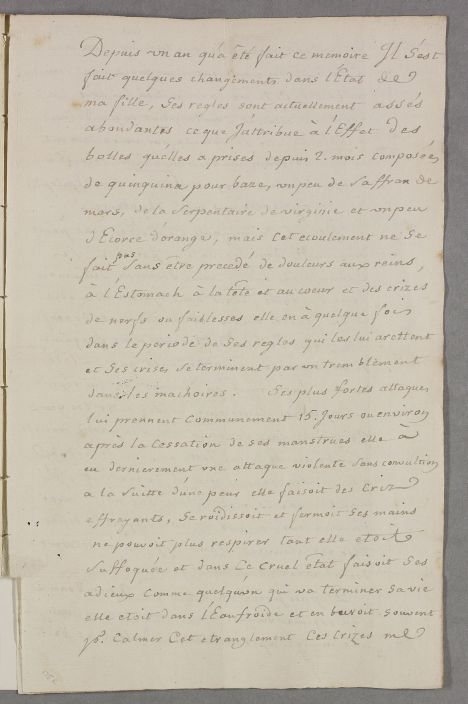 Depuis un an qu'a été fait ce memoire Il s'est
fait quelques changements dans l'Etat de
ma fille, Ses regles sont actuellement assés
abondantes ce que J'attribue à l'Effet des
bolles qu'elles a prises depuis 2. mois composées
de quinquina pour baze, un peu de Saffran de
mars, de la Serpentaire de virginie et un peu
d'Ecorce d'orange, mais cet ecoulement ne se
fait pas sans être precedé de douleurs aux reins,
à l'Estomach à la tête et au coeur et des crizes
de nerfs ou faiblesses elle en à quelque fois
dans le periode de ses regles qui les lui arettent
et Ses crises se terminent par un tremblement
dans les machoires. Ses plus fortes attaques
lui prennent Communement 15. Jours ou environ
après la Cessation de ses manstrues elle à
eu dernierement une attaque violente sans convultion
a la Suitte d'une peur elle faisoit des Criz
effrayants, Se roidissoit et fermoit Ses mains
ne pouvoit plus respirer tant elle etoit
Suffoquée et dans ce Cruel état faisoit Ses
adieux comme quelqu'un qui va terminer sa vie
elle etoit dans l'Eau froide et en buvoit souvent
pr. Calmer Cet etranglement Ces Crizes